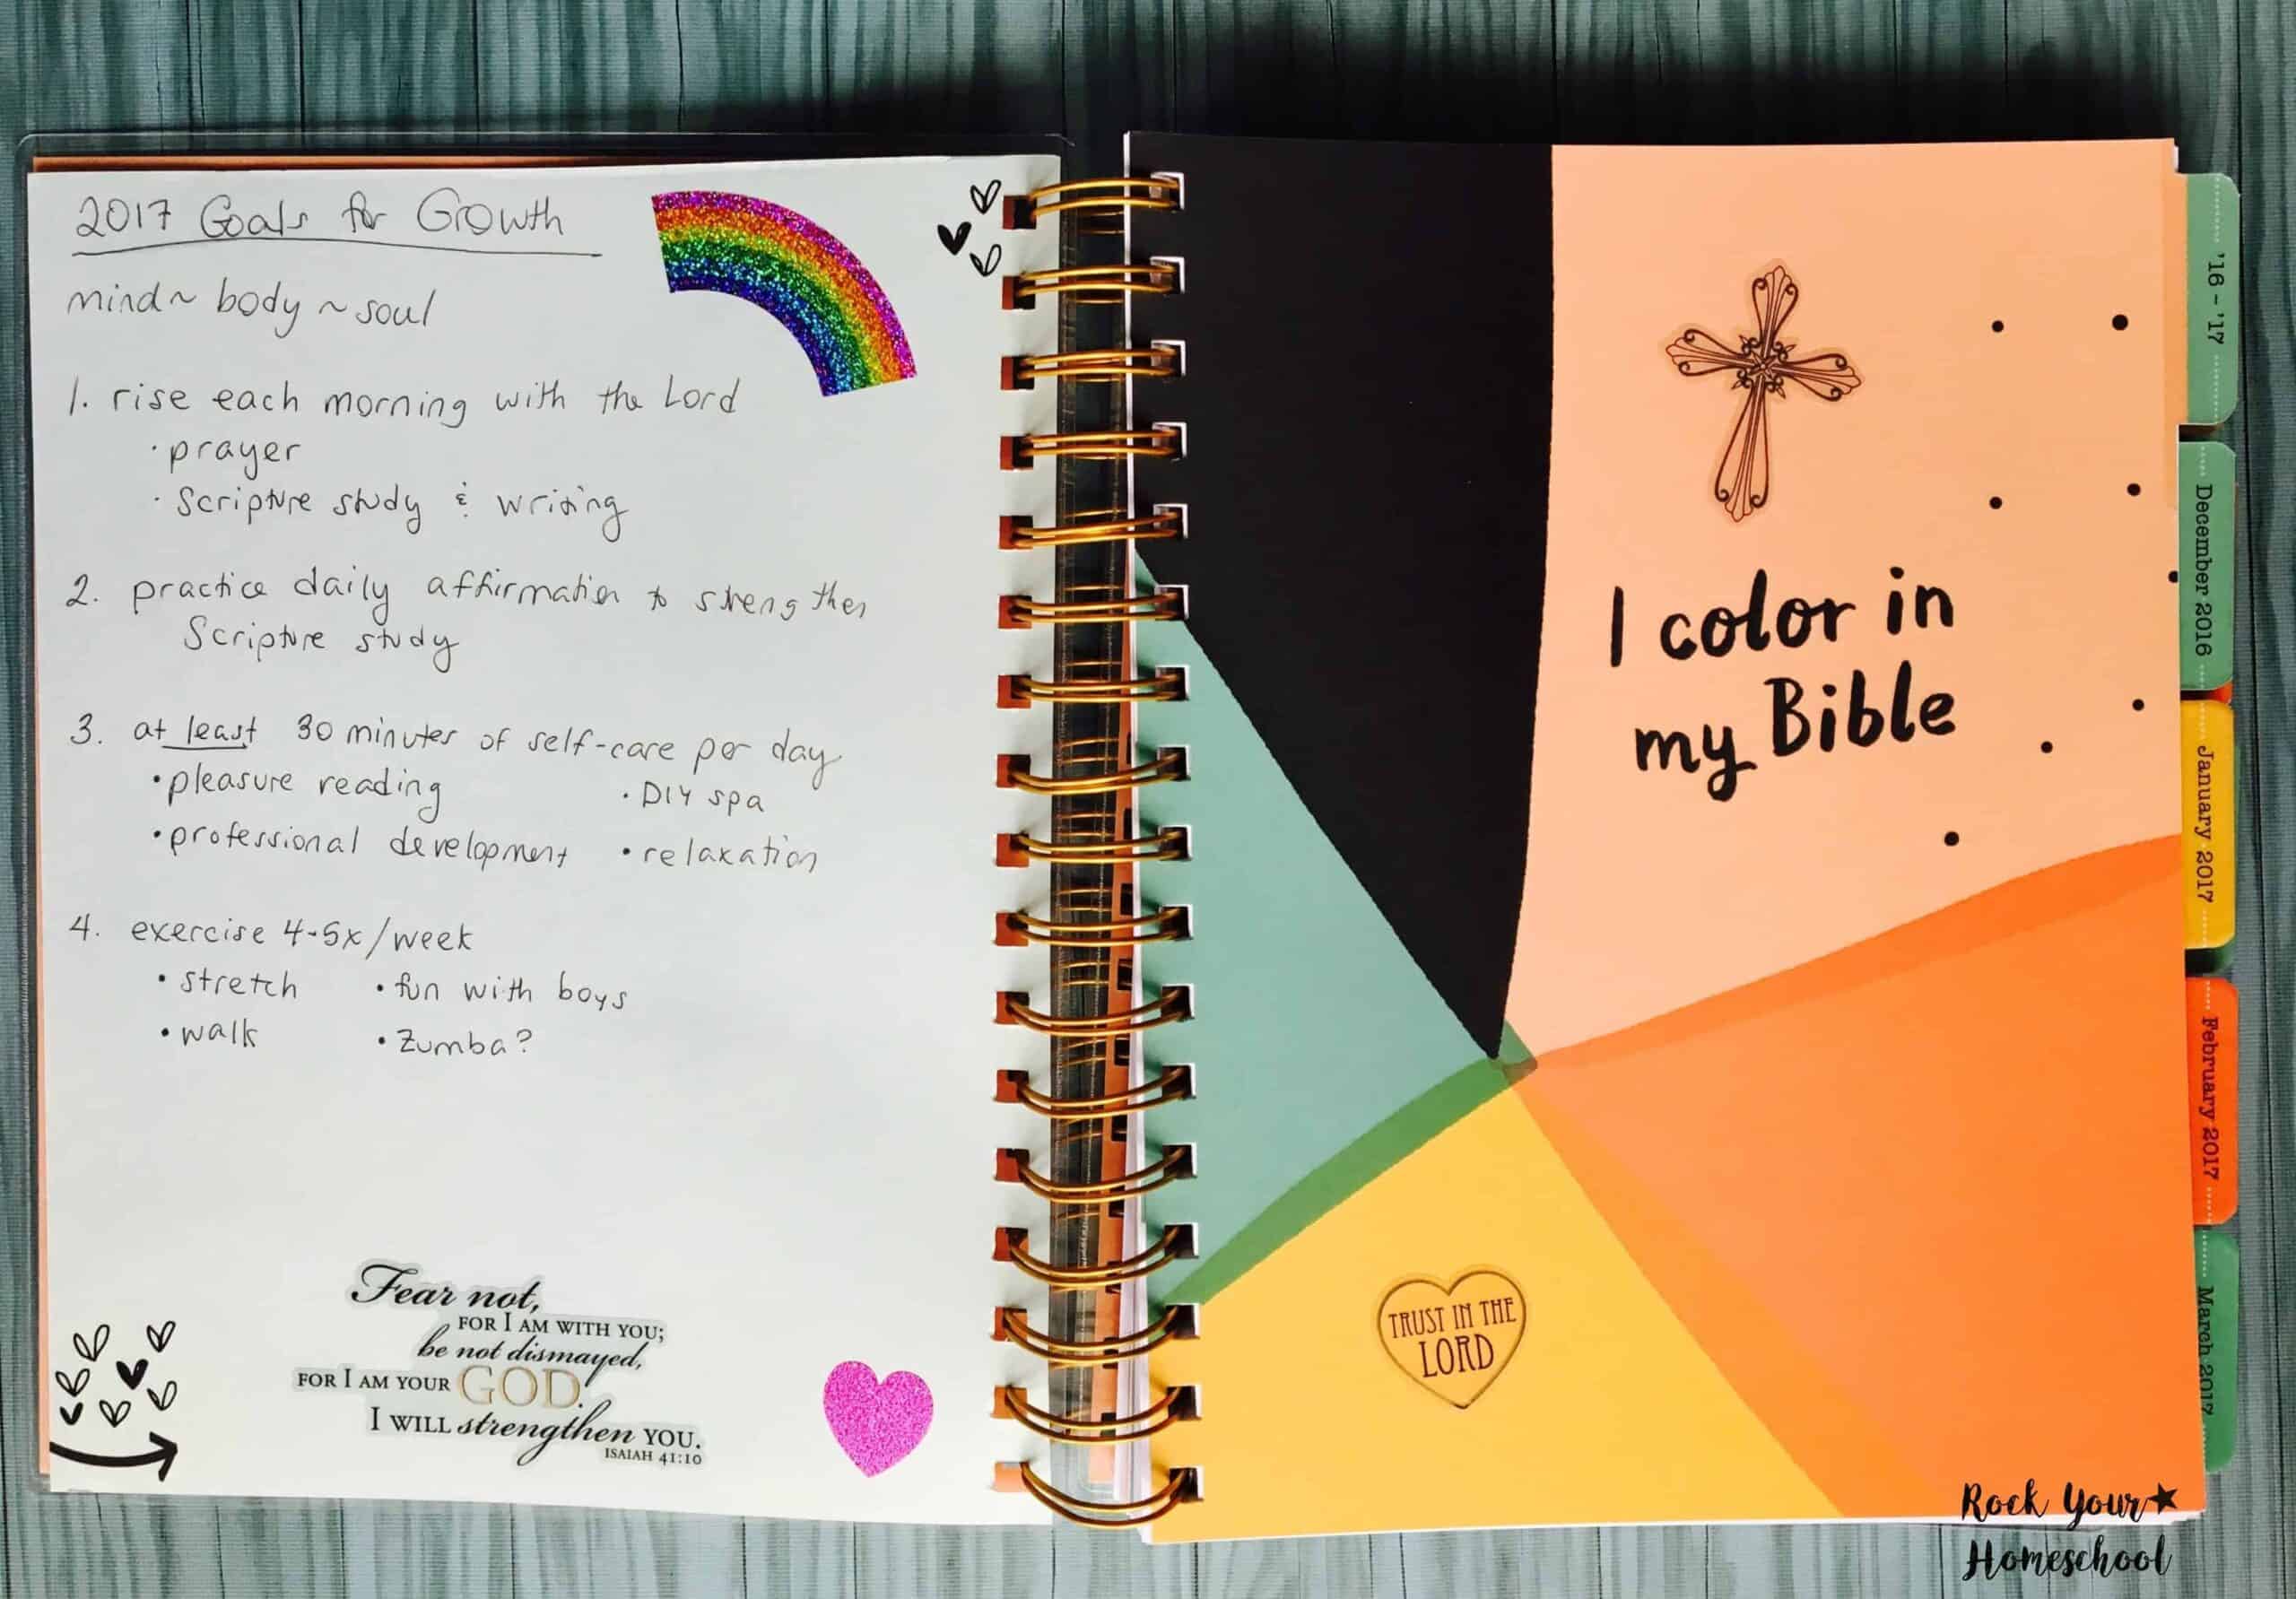 2017 Goals for Growth
mind ~ body ~ soul
1. rise each morning with the Lord
· prayer
· Scripture study & writing
2. practice daily affirmation to strengthen
Scripture study
3. at least 30 minutes of self-care per day
• pleasure reading
• DIY spa
• professional development
• relaxation
4. exercise 4-5x/week
• stretch
• fun with boys
• walk
• Zumba?
Fear not,
FOR I AM WITH YOU;
be not dismayed,
FOR I AM YOUR GOD.
I WILL strengthen YOU.
ISAIAH 41:10
I color in
my Bible
TRUST IN THE
LORD
'16 - '17
December 2016
January 2017
February 2017
March 2017
Rock Your
Homeschool